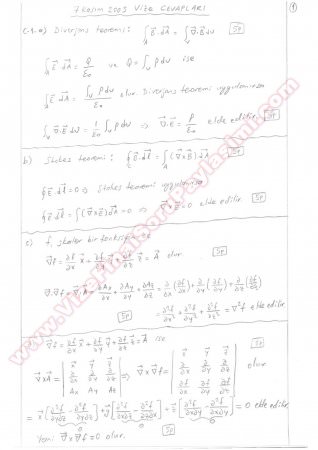 7 Kasım 2003 Vize CEVAPLARI
1
C-1-a) Diverjans teoremi: ∮_A E⃗.dA⃗ = ∫_V ∇⃗.E⃗ dv 5p
∮_A E⃗.dA⃗ = Q/ε₀ ve Q = ∫_V ρ dv ise
∮_A E⃗.dA⃗ = ∫_V ρ dv / ε₀ olur. Diverjans teoremi uygulanırsa
∫_V ∇⃗.E⃗ dv = 1/ε₀ ∫_V ρ dv ⇒ ∇⃗.E⃗ = ρ/ε₀ elde edilir. 5p
b) Stokes teoremi: ∮_C E⃗.dℓ⃗ = ∫_A (∇⃗×E⃗).dA⃗ 5p
∮ E⃗.dℓ⃗ = 0 ⇒ Stokes teoremi uygulanırsa
∮ E⃗.dℓ⃗ = ∫ (∇⃗×E⃗).dA⃗ = 0 ⇒ ∇⃗×E⃗ = 0 elde edilir. 5p
c) f, skaler bir fonksiyon 5p
∇⃗f = ∂f/∂x x⃗ + ∂f/∂y y⃗ + ∂f/∂z z⃗ = A⃗ olur
∇⃗.∇⃗f = ∇⃗.A⃗ = ∂Ax/∂x + ∂Ay/∂y + ∂Az/∂z = ∂/∂x (∂f/∂x) + ∂/∂y (∂f/∂y) + ∂/∂z (∂f/∂z)
5p = ∂²f/∂x² + ∂²f/∂y² + ∂²f/∂z² = ∇²f elde edilir
∇⃗f = ∂f/∂x x⃗ + ∂f/∂y y⃗ + ∂f/∂z z⃗ = A⃗ ise 5p
∇⃗×A⃗ = | x⃗ y⃗ z⃗ ; ∂/∂x ∂/∂y ∂/∂z ; Ax Ay Az | ⇒ ∇⃗×∇⃗f = | x⃗ y⃗ z⃗ ; ∂/∂x ∂/∂y ∂/∂z ; ∂f/∂x ∂f/∂y ∂f/∂z | olur
= x⃗ [∂²f/∂y∂z − ∂²f/∂y∂z] + y⃗ [∂²f/∂x∂z − ∂²f/∂x∂z] + z⃗ [∂²f/∂x∂y − ∂²f/∂x∂y] = 0 elde edilir
0 0 0
Yani ∇⃗×∇⃗f = 0 olur. 5p
www.VizeFinalSoruPaylasimi.com